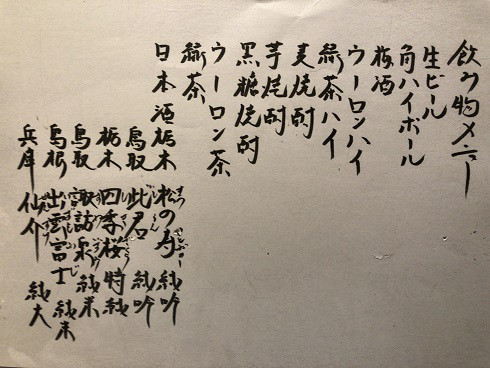 飲み物メニュー
生ビール
角ハイボール
梅酒
ウーロンハイ
緑茶ハイ
麦焼酎
芋焼酎
黒糖焼酎
ウーロン茶
緑茶
日本酒 栃木 松の寿 純吟
鳥取 此君 純吟
栃木 四季桜 特純
鳥取 諏訪泉 純米
島根 出雲富士 純米
兵庫 仙介 純大